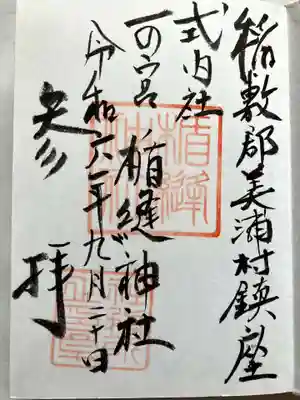 稲敷郡美浦村鎮座
式内社
一の宮楯縫神社
令和六年九月二十日
参拝
楯縫
神社